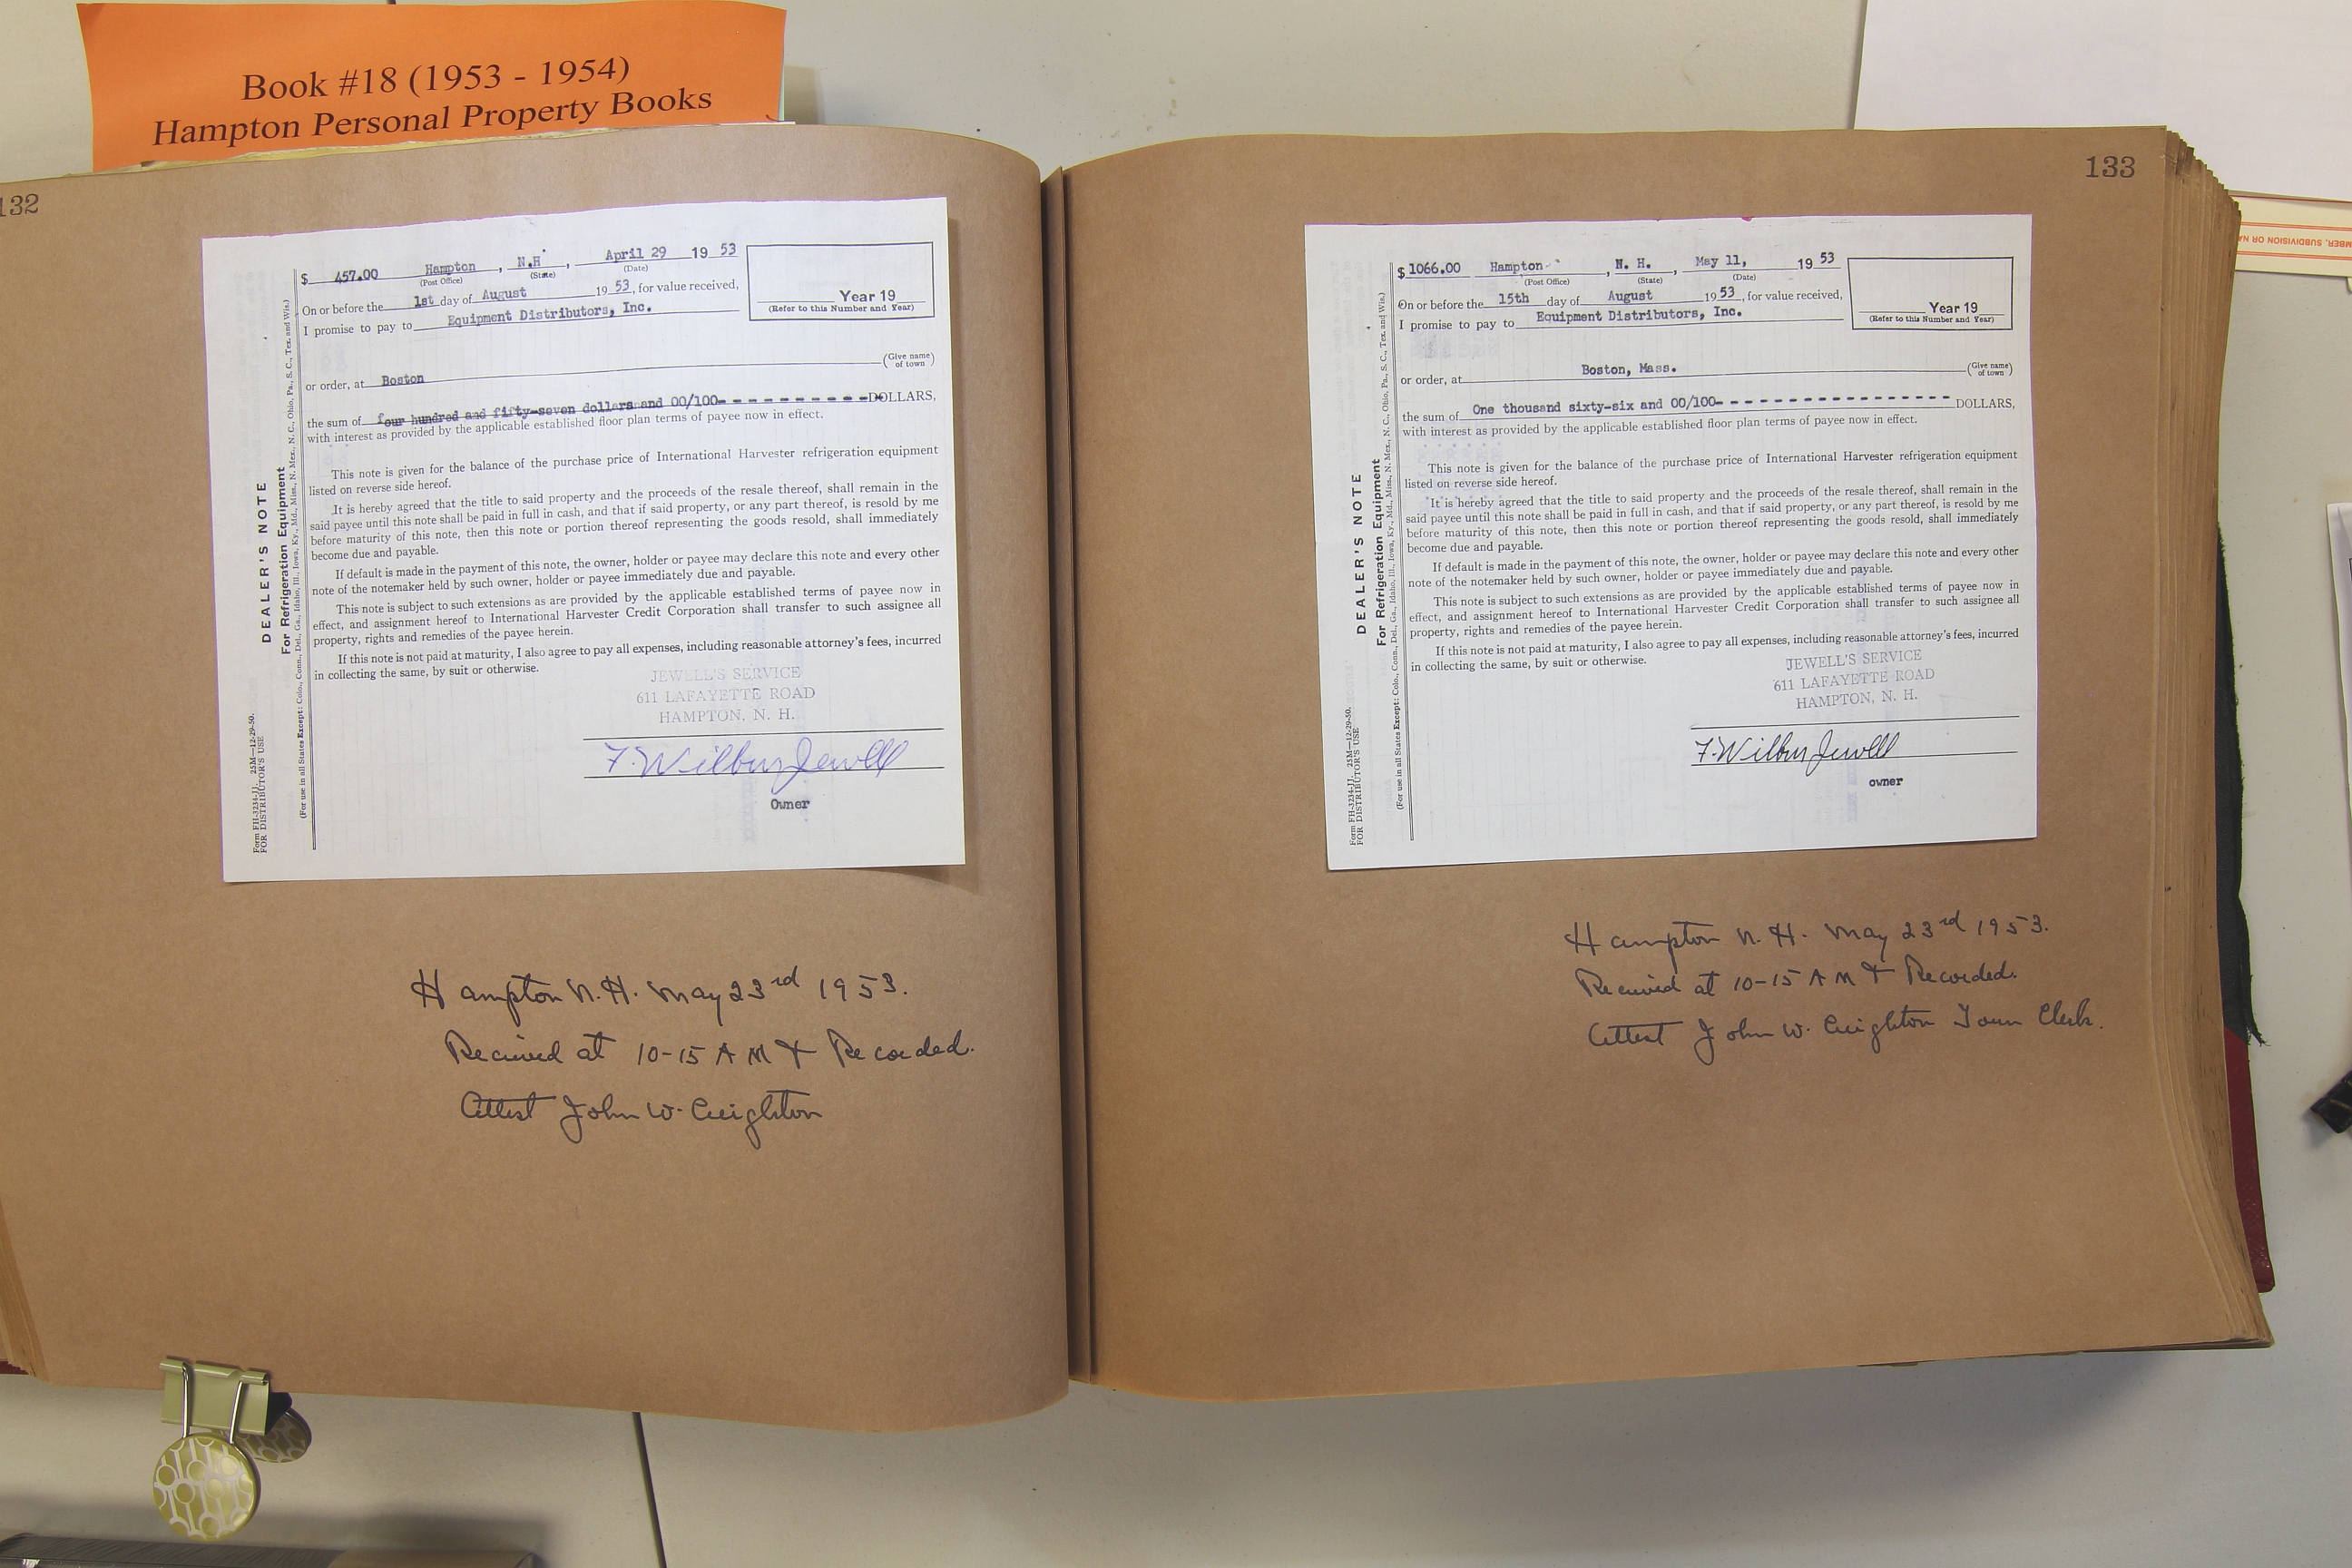 Book #18 (1953 - 1954)
Hampton Personal Property Books
132
$ 457.00 Hampton, N.H., April 29 1953
(Post Office) (State) (Date)
On or before the 1st day of August 1953, for value received,
I promise to pay to Equipment Distributors, Inc.
Year 19
(Refer to this Number and Year)
or order, at Boston (Give name of town)
the sum of four hundred and fifty-seven dollars and 00/100- - - - - - - - - - - DOLLARS,
with interest as provided by the applicable established floor plan terms of payee now in effect.
This note is given for the balance of the purchase price of International Harvester refrigeration equipment
listed on reverse side hereof.
It is hereby agreed that the title to said property and the proceeds of the resale thereof, shall remain in the
said payee until this note shall be paid in full in cash, and that if said property, or any part thereof, is resold by me
before maturity of this note, then this note or portion thereof representing the goods resold, shall immediately
become due and payable.
If default is made in the payment of this note, the owner, holder or payee may declare this note and every other
note of the notemaker held by such owner, holder or payee immediately due and payable.
This note is subject to such extensions as are provided by the applicable established terms of payee now in
effect, and assignment hereof to International Harvester Credit Corporation shall transfer to such assignee all
property, rights and remedies of the payee herein.
If this note is not paid at maturity, I also agree to pay all expenses, including reasonable attorney's fees, incurred
in collecting the same, by suit or otherwise.
JEWELL'S SERVICE
611 LAFAYETTE ROAD
HAMPTON, N. H.
F. Wilbur Jewell
Owner
DEALER'S NOTE
For Refrigeration Equipment
(For use in all States Except: Colo., Conn., Del., Ga., Idaho, Ill., Iowa, Ky., Md., Miss., N. Mex., N. C., Ohio, Pa., S. C., Tex. and Wis.)
Form FH-3234-JJ. 25M—12-29-50.
FOR DISTRIBUTOR'S USE
Hampton N.H. May 23rd 1953.
Received at 10-15 A M & Recorded.
Attest John W. Creighton
133
$ 1066.00 Hampton, N. H., May 11, 1953
(Post Office) (State) (Date)
On or before the 15th day of August 1953, for value received,
I promise to pay to Equipment Distributors, Inc.
Year 19
(Refer to this Number and Year)
or order, at Boston, Mass. (Give name of town)
the sum of One thousand sixty-six and 00/100- - - - - - - - - - - - - - - - DOLLARS,
with interest as provided by the applicable established floor plan terms of payee now in effect.
This note is given for the balance of the purchase price of International Harvester refrigeration equipment
listed on reverse side hereof.
It is hereby agreed that the title to said property and the proceeds of the resale thereof, shall remain in the
said payee until this note shall be paid in full in cash, and that if said property, or any part thereof, is resold by me
before maturity of this note, then this note or portion thereof representing the goods resold, shall immediately
become due and payable.
If default is made in the payment of this note, the owner, holder or payee may declare this note and every other
note of the notemaker held by such owner, holder or payee immediately due and payable.
This note is subject to such extensions as are provided by the applicable established terms of payee now in
effect, and assignment hereof to International Harvester Credit Corporation shall transfer to such assignee all
property, rights and remedies of the payee herein.
If this note is not paid at maturity, I also agree to pay all expenses, including reasonable attorney's fees, incurred
in collecting the same, by suit or otherwise.
JEWELL'S SERVICE
611 LAFAYETTE ROAD
HAMPTON, N. H.
F. Wilbur Jewell
owner
DEALER'S NOTE
For Refrigeration Equipment
(For use in all States Except: Colo., Conn., Del., Ga., Idaho, Ill., Iowa, Ky., Md., Miss., N. Mex., N. C., Ohio, Pa., S. C., Tex. and Wis.)
Form FH-3234-JJ. 25M—12-29-50.
FOR DISTRIBUTOR'S USE
Hampton N.H. May 23rd 1953.
Received at 10-15 A M & Recorded.
Attest John W. Creighton Town Clerk.
MBER, SUBDIVISION OR NA